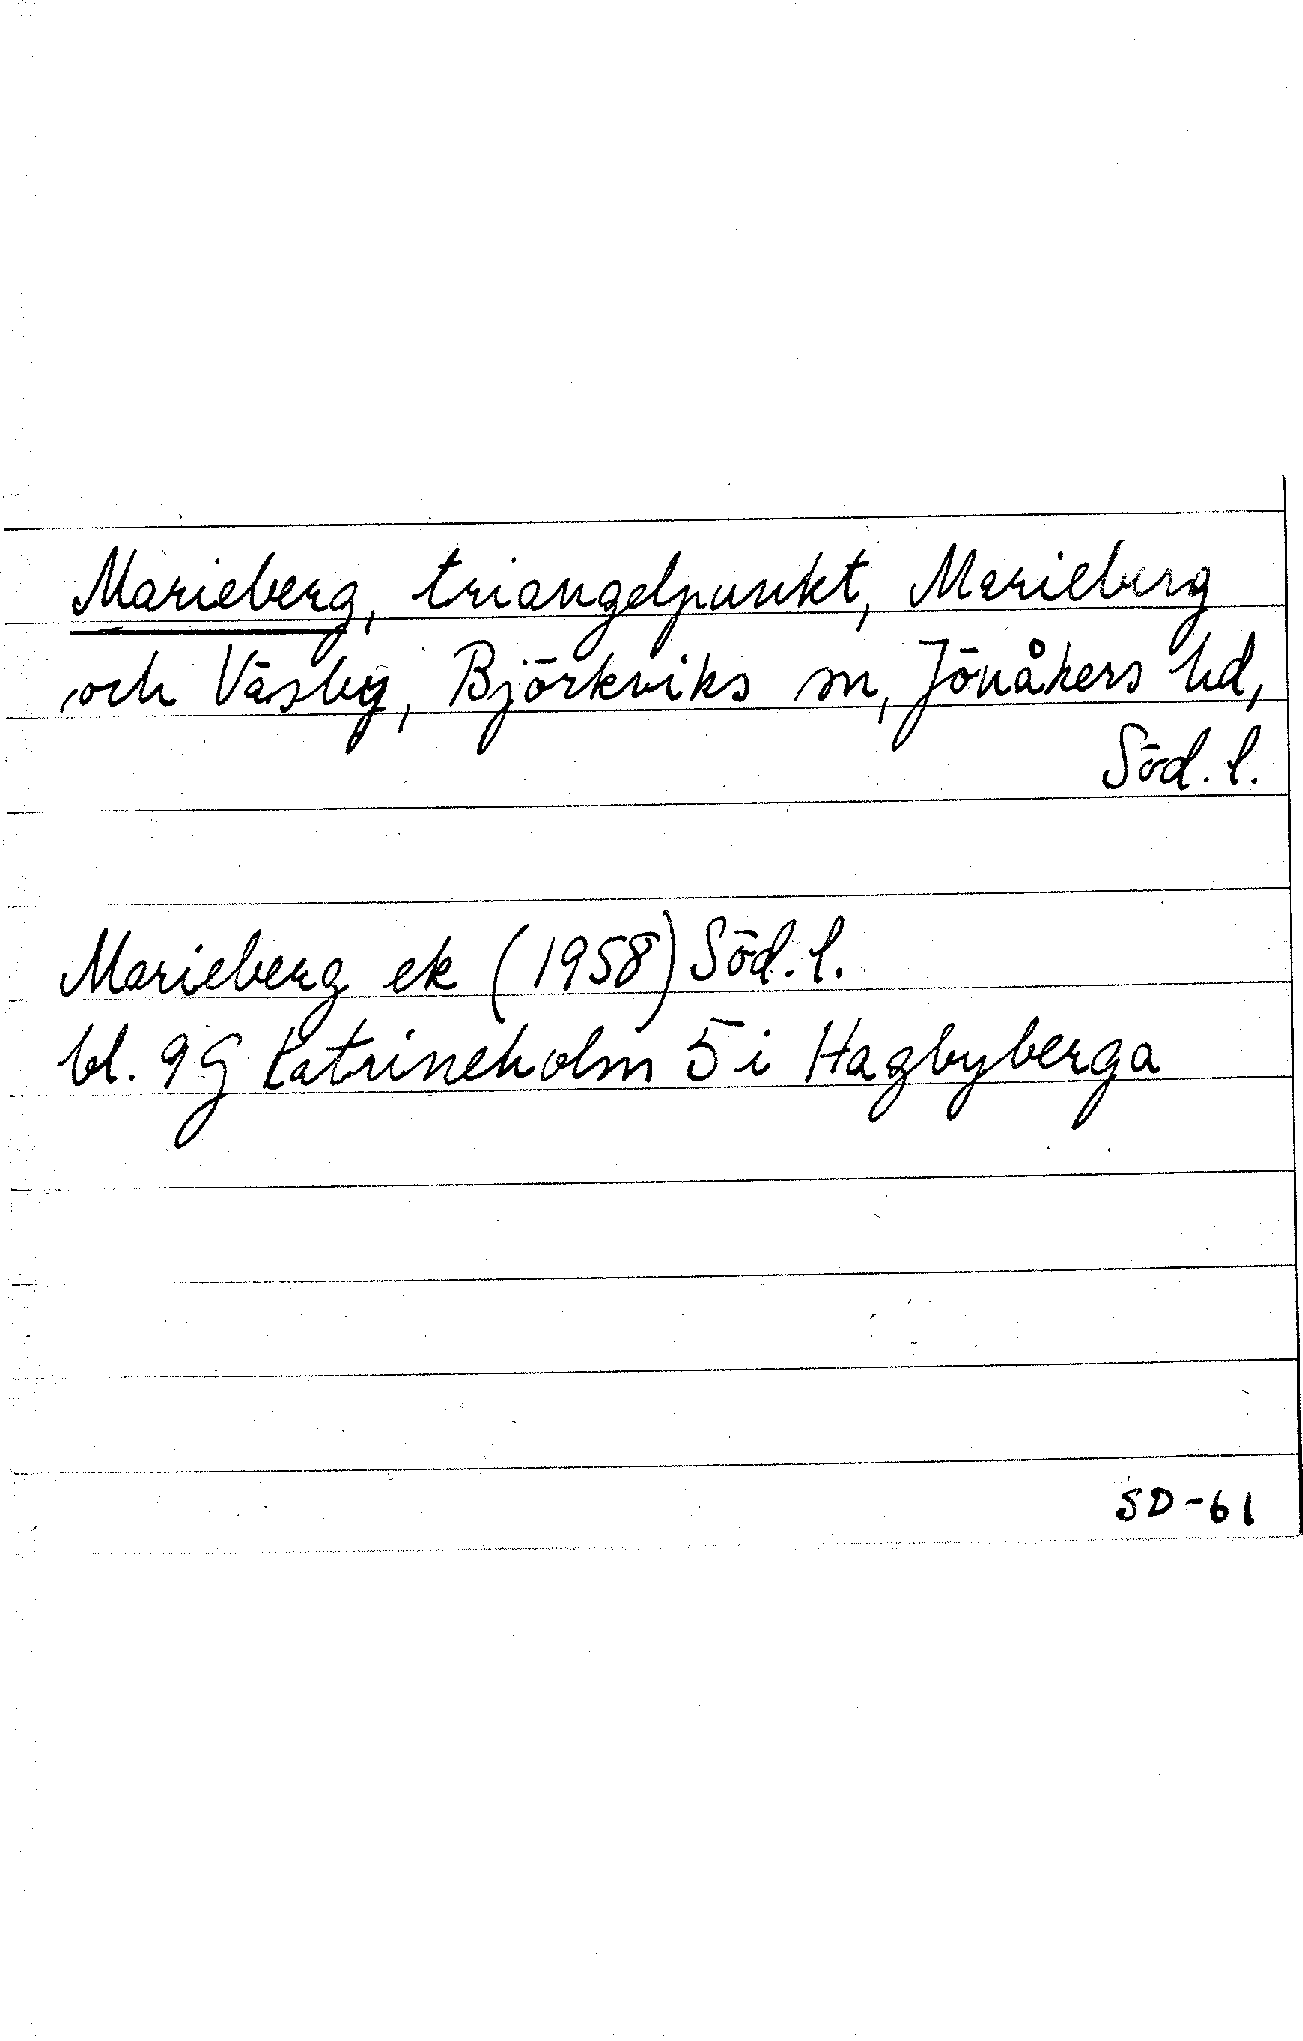 Marieberg, triangelpunkt, Marieberg
och Väsby, Björkviks sn, Jönåkers hd,
Söd. l.
Marieberg ek (1958) Söd. l.
bl. 9G Katrineholm 5i Hagbyberga
SD-61